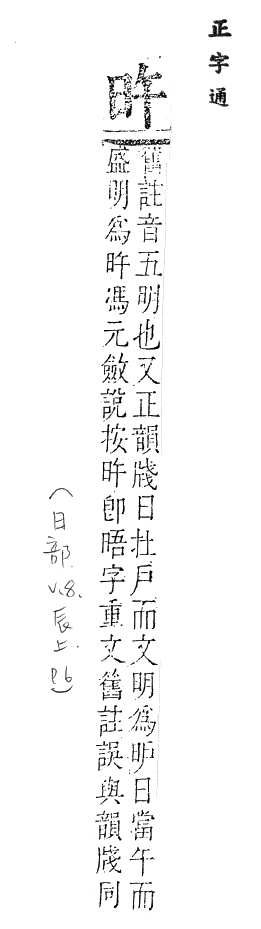 正字通
旿
舊註音五明也又正韻牋日在戶而文明為昈日當午而
盛明為旿馮元斂說按旿卽晤字重文舊註誤與韻牋同
(日部 v.8. 辰上. p6)